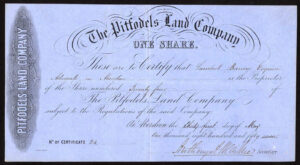 PITFODELS LAND COMPANY
The Pitfodels Land Company
ONE SHARE.
These are to Certify that
Advocate in Aberdeen is the Proprietor
of the Share numbered Twenty four of
The Pitfodels Land Company
subject to the Regulations of the said Company.
At Aberdeen the Thirty first day of May
One thousand eight hundred and fifty
No OF CERTIFICATE 24